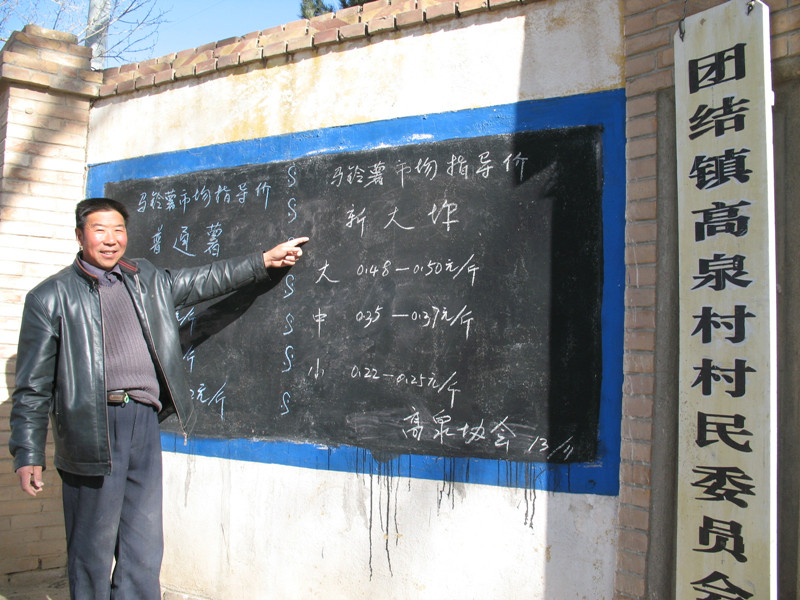 马铃薯市场指导价
普通薯
元/斤
马铃薯市场指导价
新大坪
大 0.48—0.50元/斤
中 0.35—0.37元/斤
小 0.22—0.25元/斤
高泉协会 13/11
团结镇高泉村村民委员会